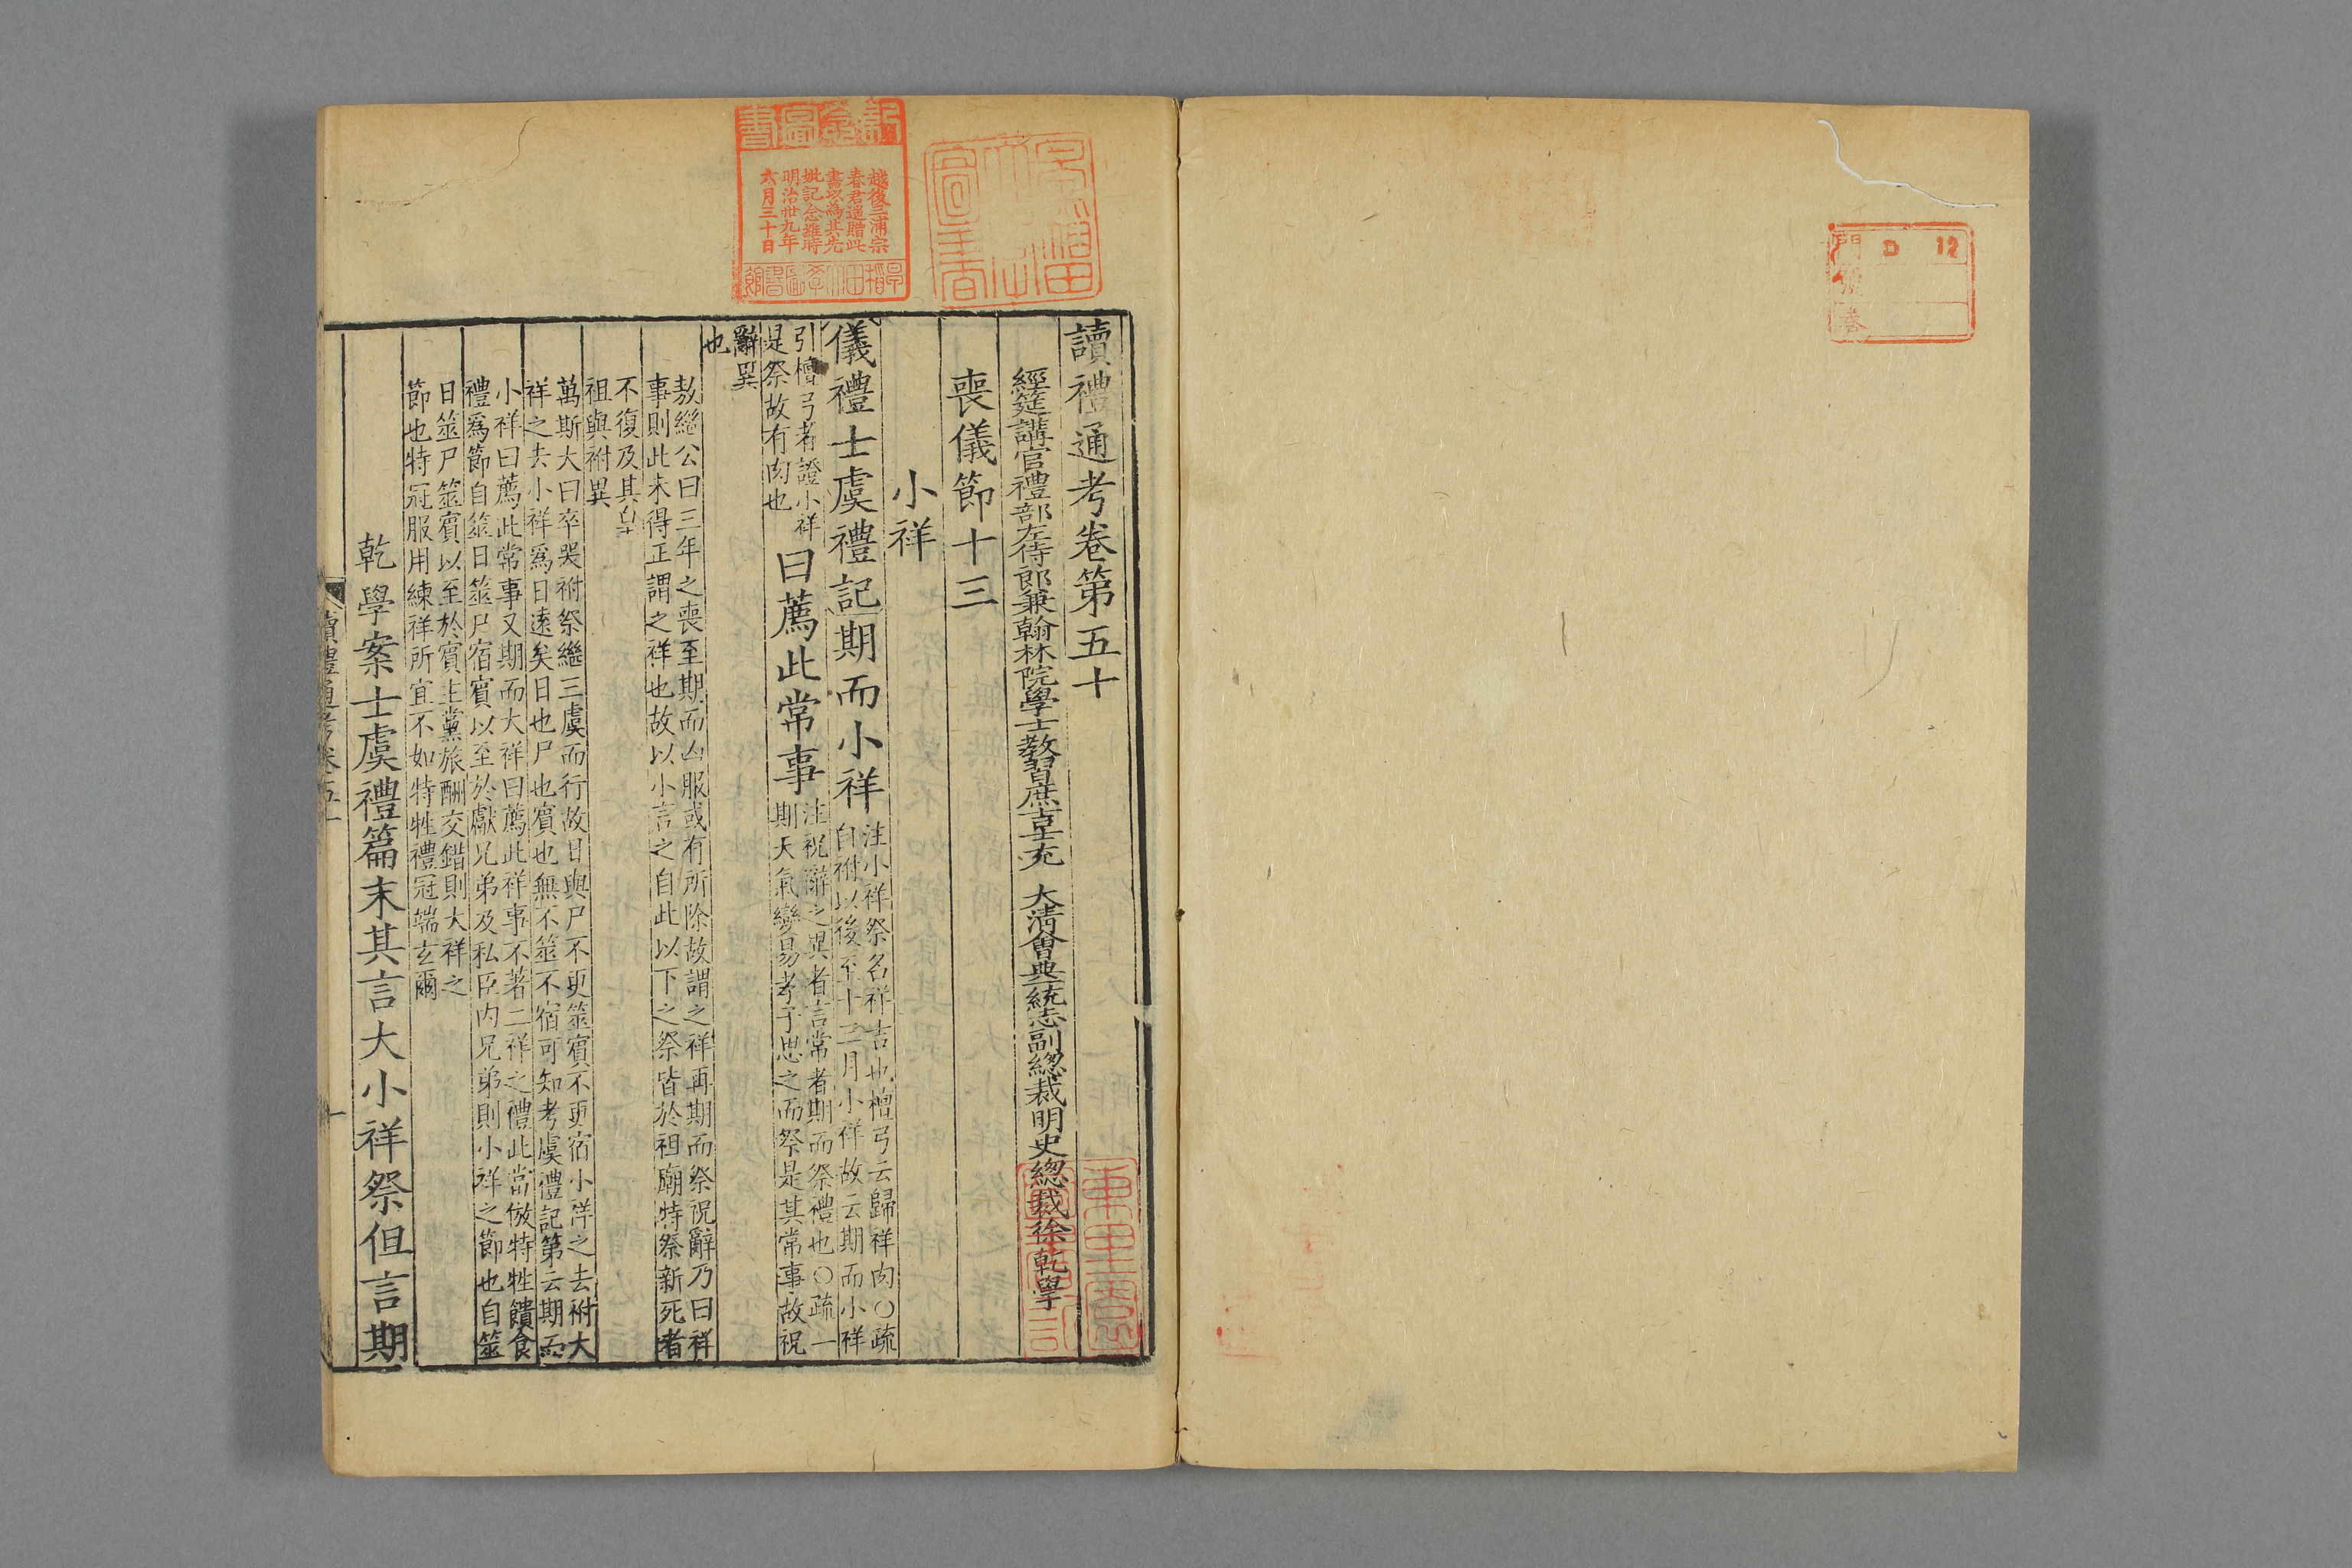 門 D 12
號
卷
讀禮通考卷第五十
經筵講官禮部左侍郎兼翰林院學士教習庶吉士充 大清會典一統志副總裁明史總裁徐乾學
喪儀節十三
小祥
儀禮士虞禮記期而小祥 注小祥祭名祥吉也檀弓云歸祥肉○疏
自祔以後至十三月小祥故云期而小祥
引檀弓者證小祥
是祭故有肉也
曰薦此常事 注祝辭之異者言常者期而祭禮也○疏一
期天氣變易孝子思之而祭是其常事故祝
辭異
也
敖繼公曰三年之喪至期而凶服或有所除故謂之祥再期而祭祝辭乃曰祥
事則此未得正謂之祥也故以小言之自此以下之祭皆於祖廟特祭新死者
不復及其
祖與祔異
萬斯大曰卒哭祔祭繼三虞而行故日與尸不更筮賓不更宿小祥之去祔大
祥之去小祥爲日遠矣日也尸也賓也無不筮不宿可知考虞禮記第云期而
小祥曰薦此常事又期而大祥曰薦此祥事不著二祥之禮此當倣特牲饋食
禮爲節自筮日筮尸宿賓以至於獻兄弟及私臣内兄弟則小祥之節也自筮
日筮尸筮賓以至於賓主黨旅酬交錯則大祥之
節也特冠服用練祥所宜不如特牲禮冠端玄爾
乾學案士虞禮篇末其言大小祥祭但言期
讀禮通考卷五十
一
越後三浦宗
春君遥贈此
書以為其先
妣記念維時
明治卅九年
六月三十日
早稻田大學圖書館